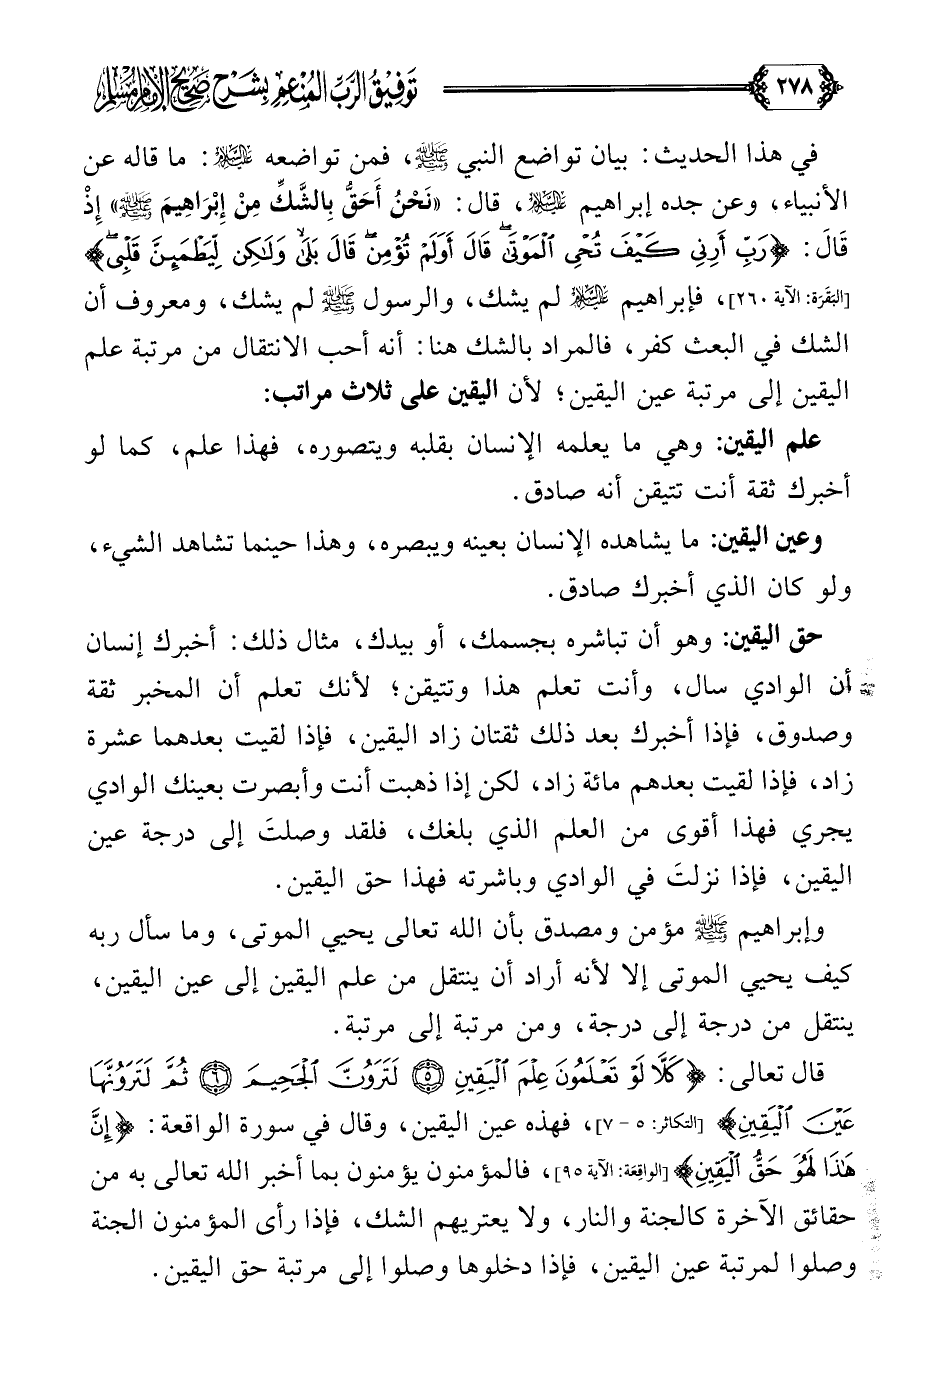 ٢٧٨ توفيق الرب المنعم بشرح صحيح الإمام مسلم
في هذا الحديث: بيان تواضع النبي ﷺ، فمن تواضعه عليه السلام: ما قاله عن
الأنبياء، وعن جده إبراهيم عليه السلام، قال: «نَحْنُ أَحَقُّ بِالشَّكِّ مِنْ إِبْرَاهِيمَ ﷺ» إِذْ
قَالَ: ﴿رَبِّ أَرِنِي كَيْفَ تُحْيِ الْمَوْتَىٰۖ قَالَ أَوَلَمْ تُؤْمِنۖ قَالَ بَلَىٰ وَلَٰكِن لِّيَطْمَئِنَّ قَلْبِيۖ﴾
[البَقَرَة: الآية ٢٦٠]، فإبراهيم عليه السلام لم يشك، والرسول ﷺ لم يشك، ومعروف أن
الشك في البعث كفر، فالمراد بالشك هنا: أنه أحب الانتقال من مرتبة علم
اليقين إلى مرتبة عين اليقين؛ لأن اليقين على ثلاث مراتب:
علم اليقين: وهي ما يعلمه الإنسان بقلبه ويتصوره، فهذا علم، كما لو
أخبرك ثقة أنت تتيقن أنه صادق.
وعين اليقين: ما يشاهده الإنسان بعينه ويبصره، وهذا حينما تشاهد الشيء،
ولو كان الذي أخبرك صادق.
حق اليقين: وهو أن تباشره بجسمك، أو بيدك، مثال ذلك: أخبرك إنسان
أن الوادي سال، وأنت تعلم هذا وتتيقن؛ لأنك تعلم أن المخبر ثقة
وصدوق، فإذا أخبرك بعد ذلك ثقتان زاد اليقين، فإذا لقيت بعدهما عشرة
زاد، فإذا لقيت بعدهم مائة زاد، لكن إذا ذهبت أنت وأبصرت بعينك الوادي
يجري فهذا أقوى من العلم الذي بلغك، فلقد وصلتَ إلى درجة عين
اليقين، فإذا نزلتَ في الوادي وباشرته فهذا حق اليقين.
وإبراهيم ﷺ مؤمن ومصدق بأن الله تعالى يحيي الموتى، وما سأل ربه
كيف يحيي الموتى إلا لأنه أراد أن ينتقل من علم اليقين إلى عين اليقين،
ينتقل من درجة إلى درجة، ومن مرتبة إلى مرتبة.
قال تعالى: ﴿كَلَّا لَوْ تَعْلَمُونَ عِلْمَ الْيَقِينِ ۝٥ لَتَرَوُنَّ الْجَحِيمَ ۝٦ ثُمَّ لَتَرَوُنَّهَا
عَيْنَ الْيَقِينِ﴾ [التكاثر: ٥ - ٧]، فهذه عين اليقين، وقال في سورة الواقعة: ﴿إِنَّ
هَٰذَا لَهُوَ حَقُّ الْيَقِينِ﴾ [الواقِعَة: الآية ٩٥]، فالمؤمنون يؤمنون بما أخبر الله تعالى به من
حقائق الآخرة كالجنة والنار، ولا يعتريهم الشك، فإذا رأى المؤمنون الجنة
وصلوا لمرتبة عين اليقين، فإذا دخلوها وصلوا إلى مرتبة حق اليقين.